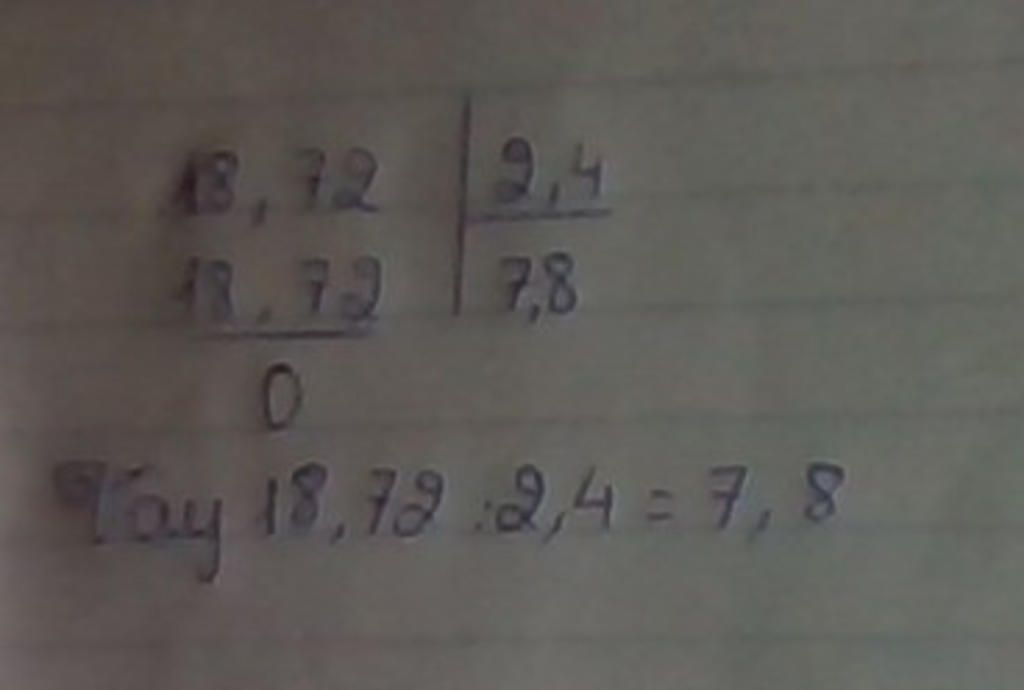 18,72 2,4
18,72 7,8
0
Vay 18,72 :2,4 = 7,8